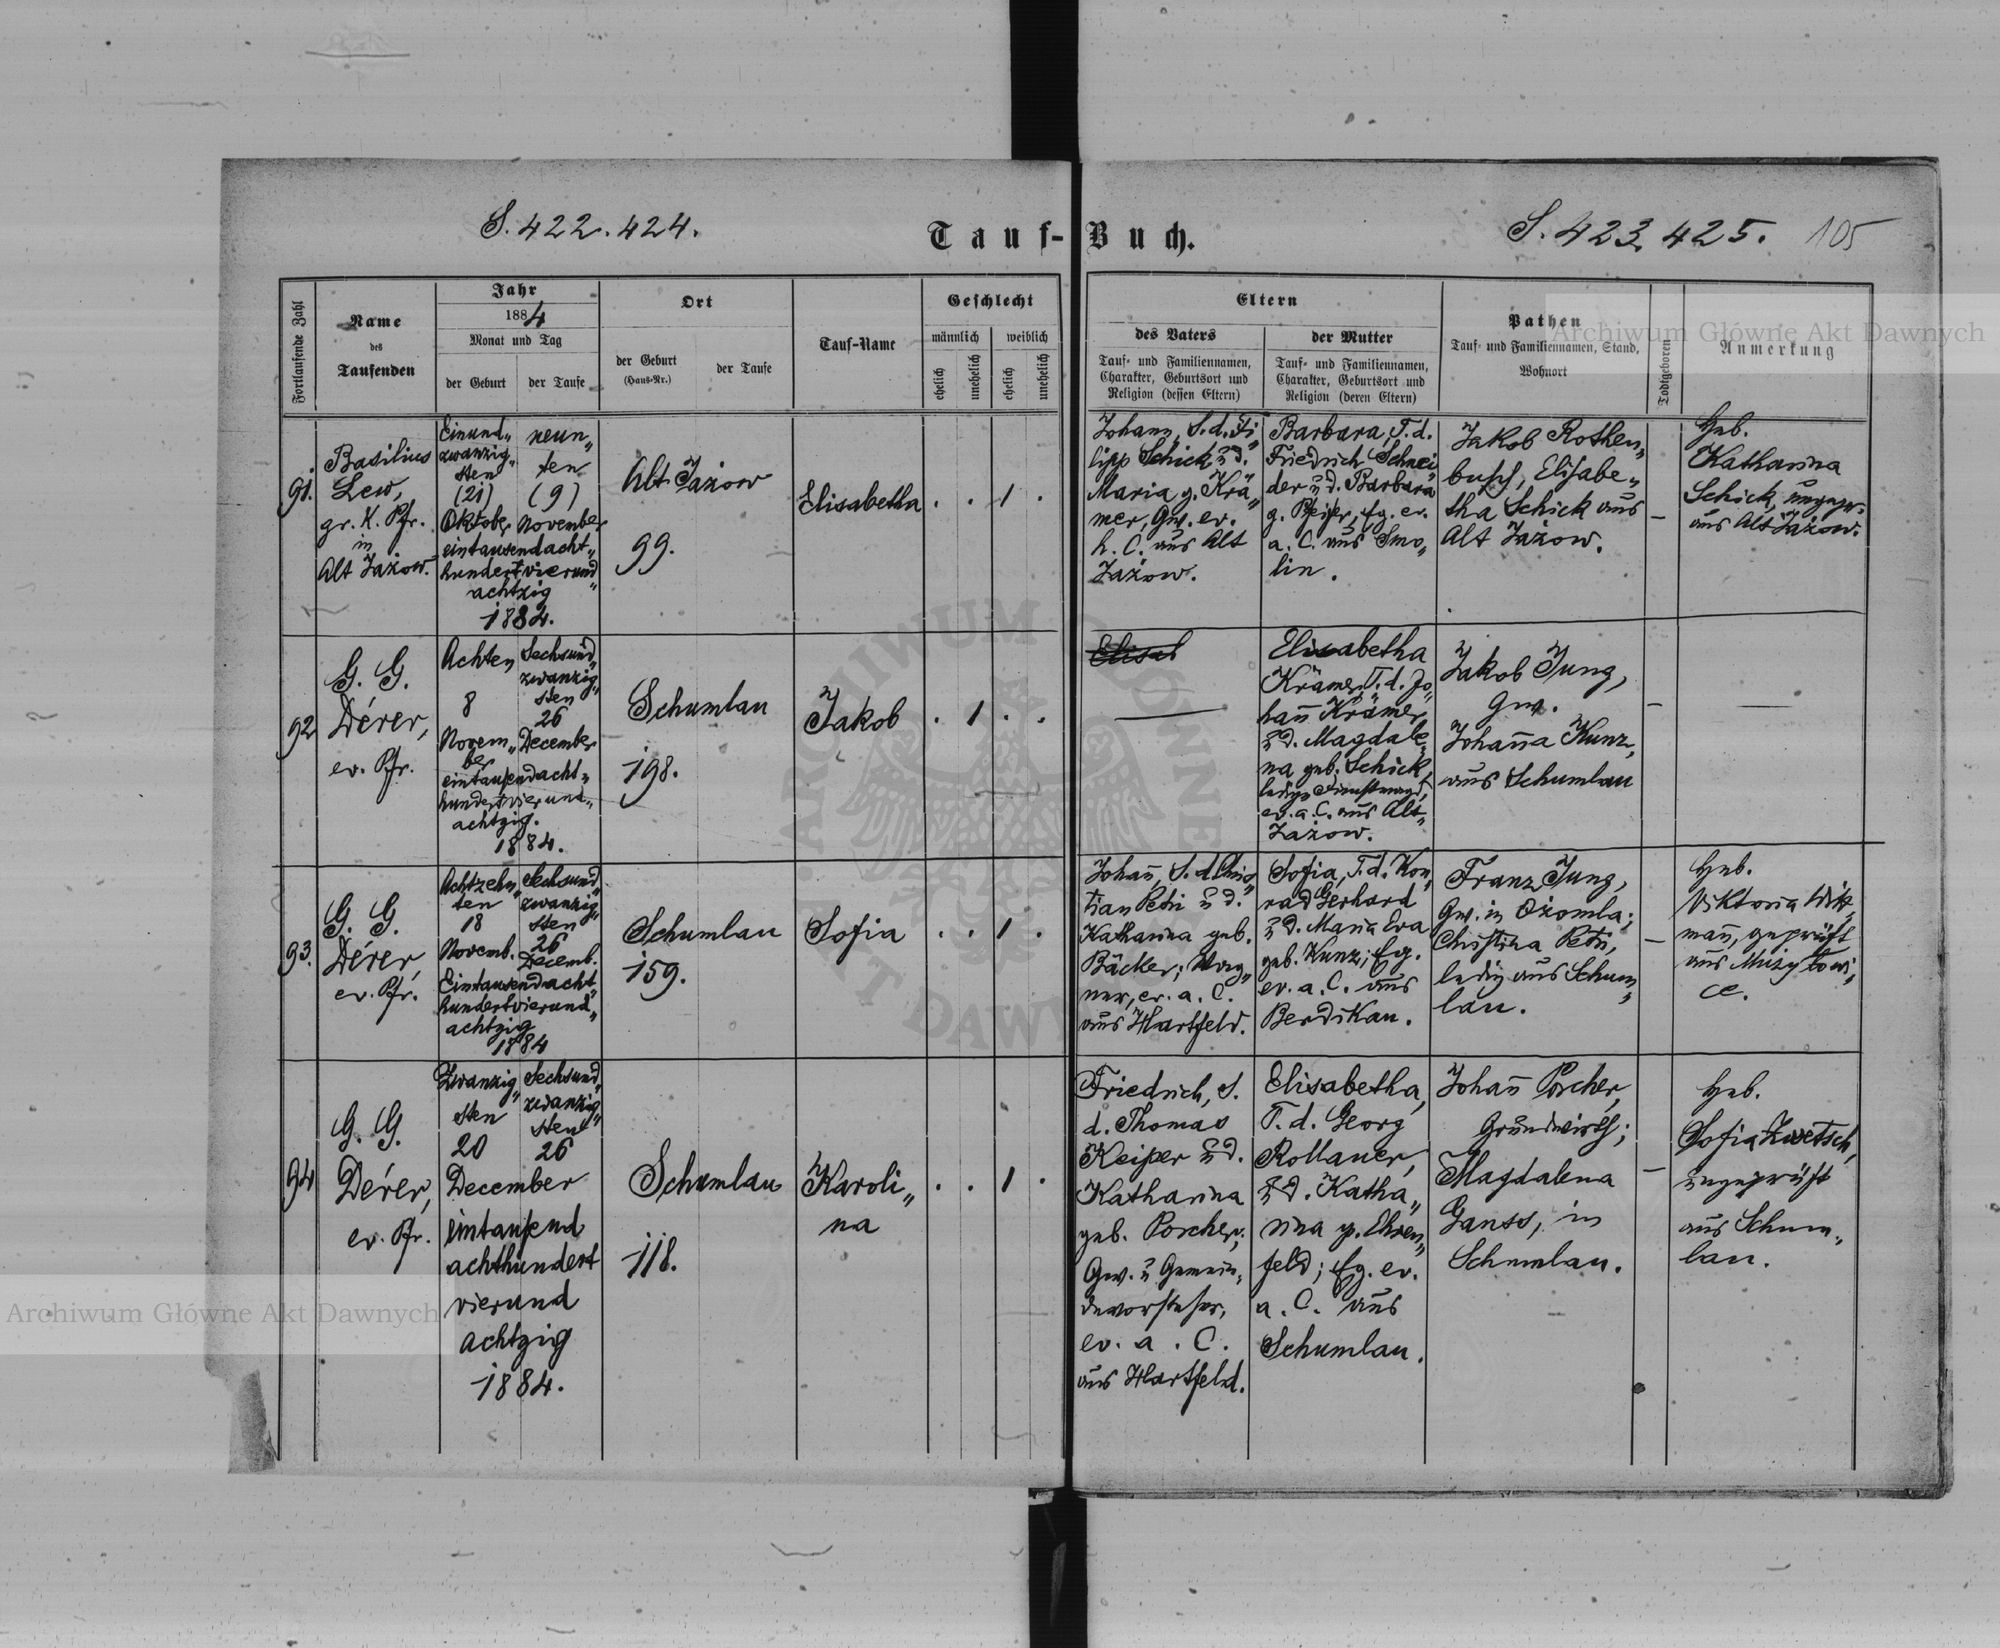 S. 422. 424.
Tauf-Buch.
S. 423. 425. 105
Fortlaufende Zahl
Name
des
Taufenden
Jahr
1884
Monat und Tag
der Geburt
der Taufe
Ort
der Geburt
(Haus-Nr.)
der Taufe
Tauf-Name
Geschlecht
männlich
weiblich
ehelich
unehelich
ehelich
unehelich
Eltern
des Vaters
Tauf- und Familiennamen,
Charakter, Geburtsort und
Religion (dessen Eltern)
der Mutter
Tauf- und Familiennamen,
Charakter, Geburtsort und
Religion (deren Eltern)
Pathen
Tauf- und Familiennamen, Stand,
Wohnort
Todtgeboren
Anmerkung
91.
Basilius
Lew,
gr. K. Pfr.
in
Alt Jażow.
Einund„
zwanzig„
sten
(21)
Oktober
neun„
ten
(9)
November
eintausendacht„
hundertvierund„
achtzig
1884.
Alt Jażow
99.
Elisabetha
. . 1 .
Johann, S. d. Fi„
lipp Schick u d.
Maria g. Krä„
mer, Gw. ev.
h. C. aus Alt
Jażow.
Barbara, T. d.
Friedrich Schnei„
der u d. Barbara
g. Keiper, Eg. ev.
a. C. aus Smo„
lin.
Jakob Rothen„
busch, Elisabe„
tha Schick aus
Alt Jażow.
—
Heb.
Katharina
Schick, ungepr.
aus Alt Jażow.
92
G. G.
Dérer,
ev. Pfr.
Achten
8
Novem„
ber
Sechsund„
zwanzig„
sten
26
December
eintausendacht„
hundertvierund„
achtzig.
1884.
Schumlau
198.
Jakob
. 1 . .
Elisab
—
Elisabetha
Krämer, T. d. Jo„
hann Krämer
u d. Magdale„
na geb. Schick,
ledige Dienstmagd,
ev. a. C. aus Alt„
Jażow.
Jakob Jung,
Gw.
Johanna Kunz,
aus Schumlau
—
—
93.
G. G.
Dérer,
ev. Pfr.
Achtzehn„
ten
18
Novemb.
Sechsund„
zwanzig„
sten
26
Decemb.
Eintausendacht„
hundertvierund„
achtzig
1884
Schumlau
159.
Sofia
. . 1 .
Johann, S. d. Chris„
tian Petri u d.
Katharina geb.
Bäcker; Wag„
ner, ev. a. C.
aus Hartfeld.
Sofia, T. d. Kon„
rad Gerhard
u d. Maria Eva
geb. Kunz; Eg.
ev. a. C. aus
Berdikau.
Franz Jung,
Gw. in Ożomla;
Christina Petri,
ledig aus Schum„
lau.
—
Heb.
Viktoria Witt„
mann, geprüft
aus Mużyłowi„
ce.
94
G. G.
Dérer,
ev. Pfr.
Zwanzig„
sten
20
Sechsund„
zwanzig„
sten
26
December
eintausend
achthundert
vierund
achtzig
1884.
Schumlau
118.
Karoli„
na
. . 1 .
Friedrich, S.
d. Thomas
Keiper u d.
Katharina
geb. Porcher;
Gw. u Gemein„
devorsteher,
ev. a. C.
aus Hartfeld.
Elisabetha,
T. d. Georg
Rollauer,
u d. Katha„
rina g. Ehren„
feld; Eg. ev.
a. C. aus
Schumlau.
Johann Porcher,
Grundwirth;
Magdalena
Ganss, in
Schumlau.
—
Heb.
Sofia Zwetsch,
ungeprüft
aus Schum„
lau.
Archiwum Główne Akt Dawnych
Archiwum Główne Akt Dawnych
ARCHIWUM GŁÓWNE AKT DAWNYCH